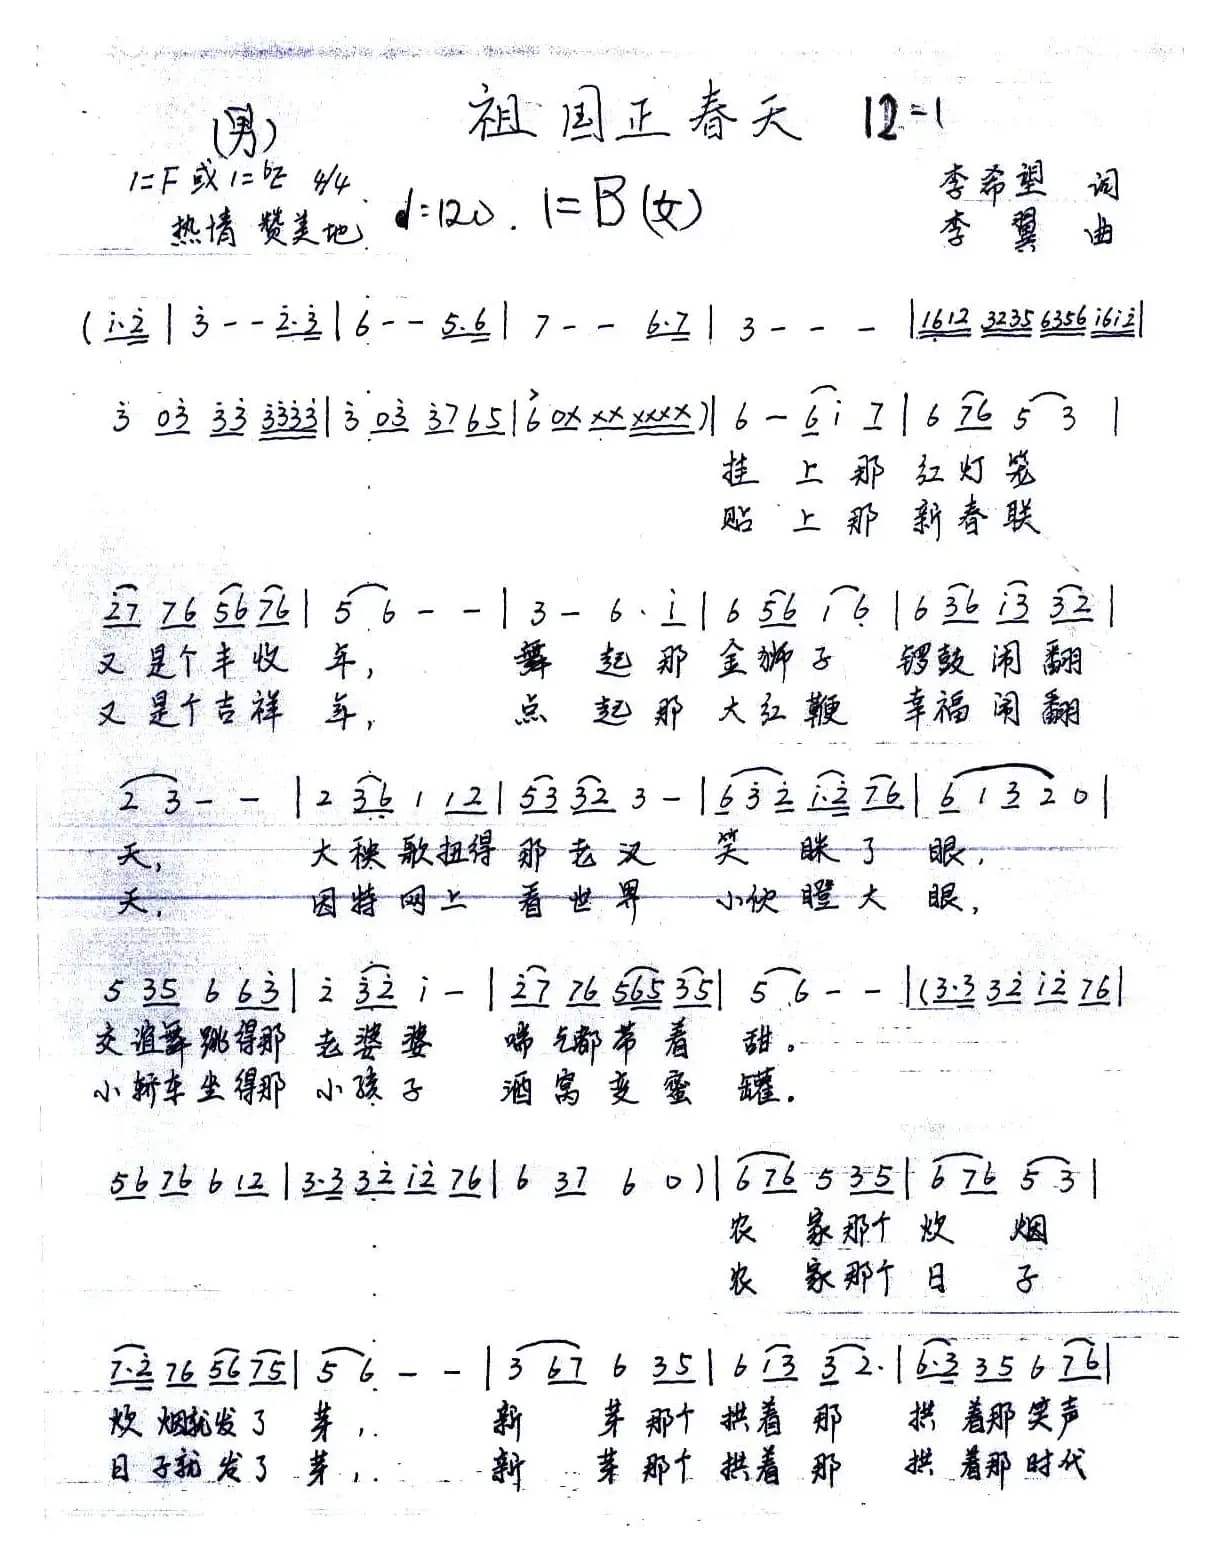 祖国正春天 12=1
(男)
1=F或1=bE 4/4 李希望 词
♩=120. 1=B(女)
热情 赞美地 李翼 曲
(i·2 | 3 - - 2·3 | 6 - - 5·6 | 7 - - 6·7 | 3 - - - | 1612 3235 6356 i6i2 |
3 03 33 3333 | 3 03 37 65 | 6 0X XX XXXX) | 6 - 6 i 7 | 6 76 5 3 |
挂 上 那 红灯笼
贴 上 那 新春联
27 76 56 76 | 5 6 - - | 3 - 6 · i | 6 56 1 6 | 6 36 i3 32 |
又是个丰收 年, 舞 起那 金狮子 锣鼓闹翻
又是个吉祥 年, 点 起那 大红鞭 幸福闹翻
2 3 - - | 2 36 1 12 | 53 32 3 - | 6 3 2 i·2 76 | 6 1 3 2 0 |
天, 大秧歌扭得 那老汉 笑 眯了 眼,
天, 因特网上 看世界 小伙瞪大 眼,
5 35 6 63 | 2 32 i - | 27 76 565 35 | 5 6 - - | (3·3 32 i2 76 |
交谊舞跳得那 老婆婆 喘气都带着 甜。
小轿车坐得那 小孩子 酒窝变蜜 罐。
56 76 6 12 | 3·3 32 i2 76 | 6 37 6 0) | 6 76 5 35 | 6 76 5 3 |
农 家那个 炊 烟
农 家那个 日 子
7·2 76 56 75 | 5 6 - - | 3 67 6 35 | 6 i3 3 2· | 6·3 35 6 76 |
炊烟就发了 芽, 新 芽那个 拱着那 拱着那笑声
日子就发了 芽, 新 芽那个 拱着那 拱着那时代